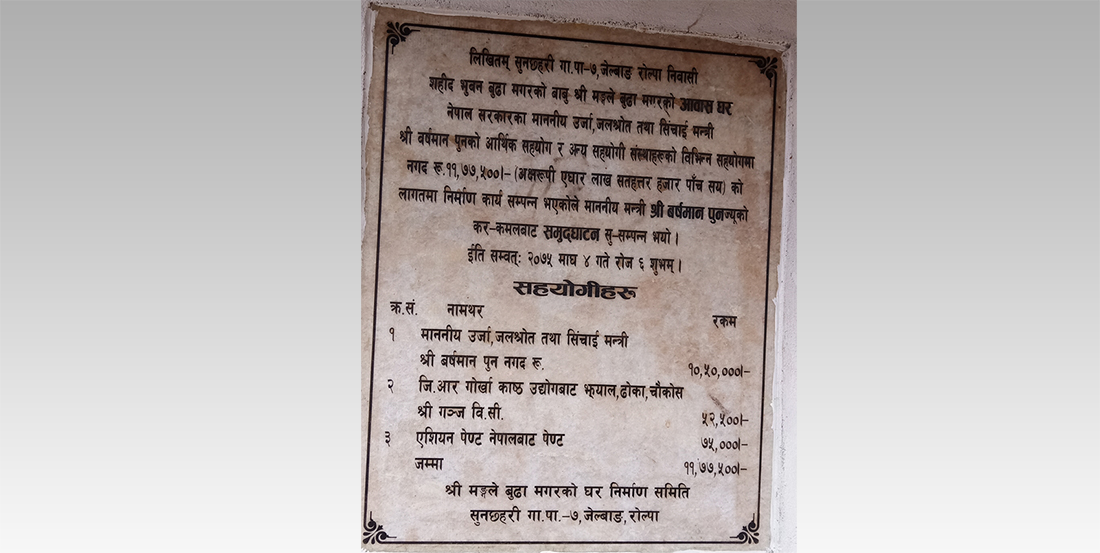 लिखितम् सुनछहरी गा.पा-७,जेल्बाङ रोल्पा निवासी
शहीद भुवन बुढा मगरको बाबु श्री मङ्गले बुढा मगरको आवास घर
नेपाल सरकारका माननीय उर्जा,जलश्रोत तथा सिंचाई मन्त्री
श्री बर्षमान पुनको आर्थिक सहयोग र अन्य सहयोगी संस्थाहरूको विभिन्न सहयोगमा
नगद रू.११,७७,५००।- (अक्षरूपी एघार लाख सतहत्तर हजार पाँच सय) को
लागतमा निर्माण कार्य सम्पन्न भएकोले माननीय मन्त्री श्री बर्षमान पुनज्यूको
कर-कमलबाट समुद्घाटन सु-सम्पन्न भयो।
ईति सम्वत्: २०७५ माघ ४ गते रोज ६ शुभम्।
सहयोगीहरू
क्र.सं. नामथर रकम
१ माननीय उर्जा,जलश्रोत तथा सिंचाई मन्त्री
श्री बर्षमान पुन नगद रू. १०,५०,०००।-
२ जि.आर गोर्खा काष्ठ उद्योगबाट झ्याल,ढोका,चौकोस
श्री गञ्ज वि.सी. ५२,५००।-
३ एशियन पेण्ट नेपालबाट पेण्ट ७५,०००।-
जम्मा ११,७७,५००।-
श्री मङ्गले बुढा मगरको घर निर्माण समिति
सुनछहरी गा.पा.-७,जेल्बाङ,रोल्पा